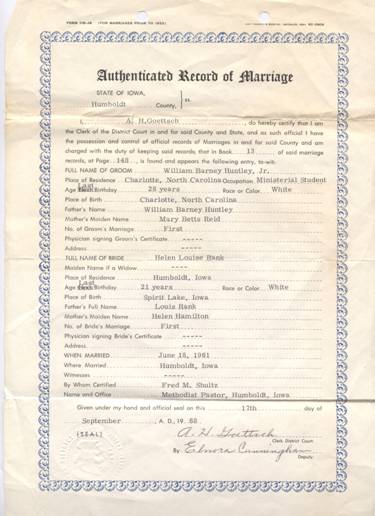 (FOR MARRIAGES PRIOR TO 1953)
Authenticated Record of Marriage
STATE OF IOWA,
Humboldt County, ss.
I, A. H. Goettsch, do hereby certify that I am
the Clerk of the District Court in and for said County and State, and as such official I have
the possession and control of official records of Marriages in and for said County and am
charged with the duty of keeping said records; that in Book 13 of said marriage
records, at Page 148, is found and appears the following entry, to-wit:
FULL NAME OF GROOM William Barney Huntley, Jr.
Place of Residence Charlotte, North Carolina Occupation Ministerial Student
Age Last Birthday 28 years Race or Color White
Place of Birth Charlotte, North Carolina
Father's Name William Barney Huntley
Mother's Maiden Name Mary Betts Reid
No. of Groom's Marriage First
Physician signing Groom's Certificate -----
Address -----
FULL NAME OF BRIDE Helen Louise Hank
Maiden Name if a Widow ----
Place of Residence Humboldt, Iowa
Age Last Birthday 21 years Race or Color White
Place of Birth Spirit Lake, Iowa
Father's Full Name Louis Hank
Mother's Maiden Name Helen Hamilton
No. of Bride's Marriage First
Physician signing Bride's Certificate -----
Address -----
WHEN MARRIED June 18, 1961
Where Married Humboldt, Iowa
Witnesses -----
By Whom Certified Fred M. Shultz
Name and Office Methodist Pastor, Humboldt, Iowa
Given under my hand and official seal on this 17th day of
September, A. D., 19 68.
(SEAL) A. H. Goettsch
Clerk District Court
By Elnora Cunningham
Deputy